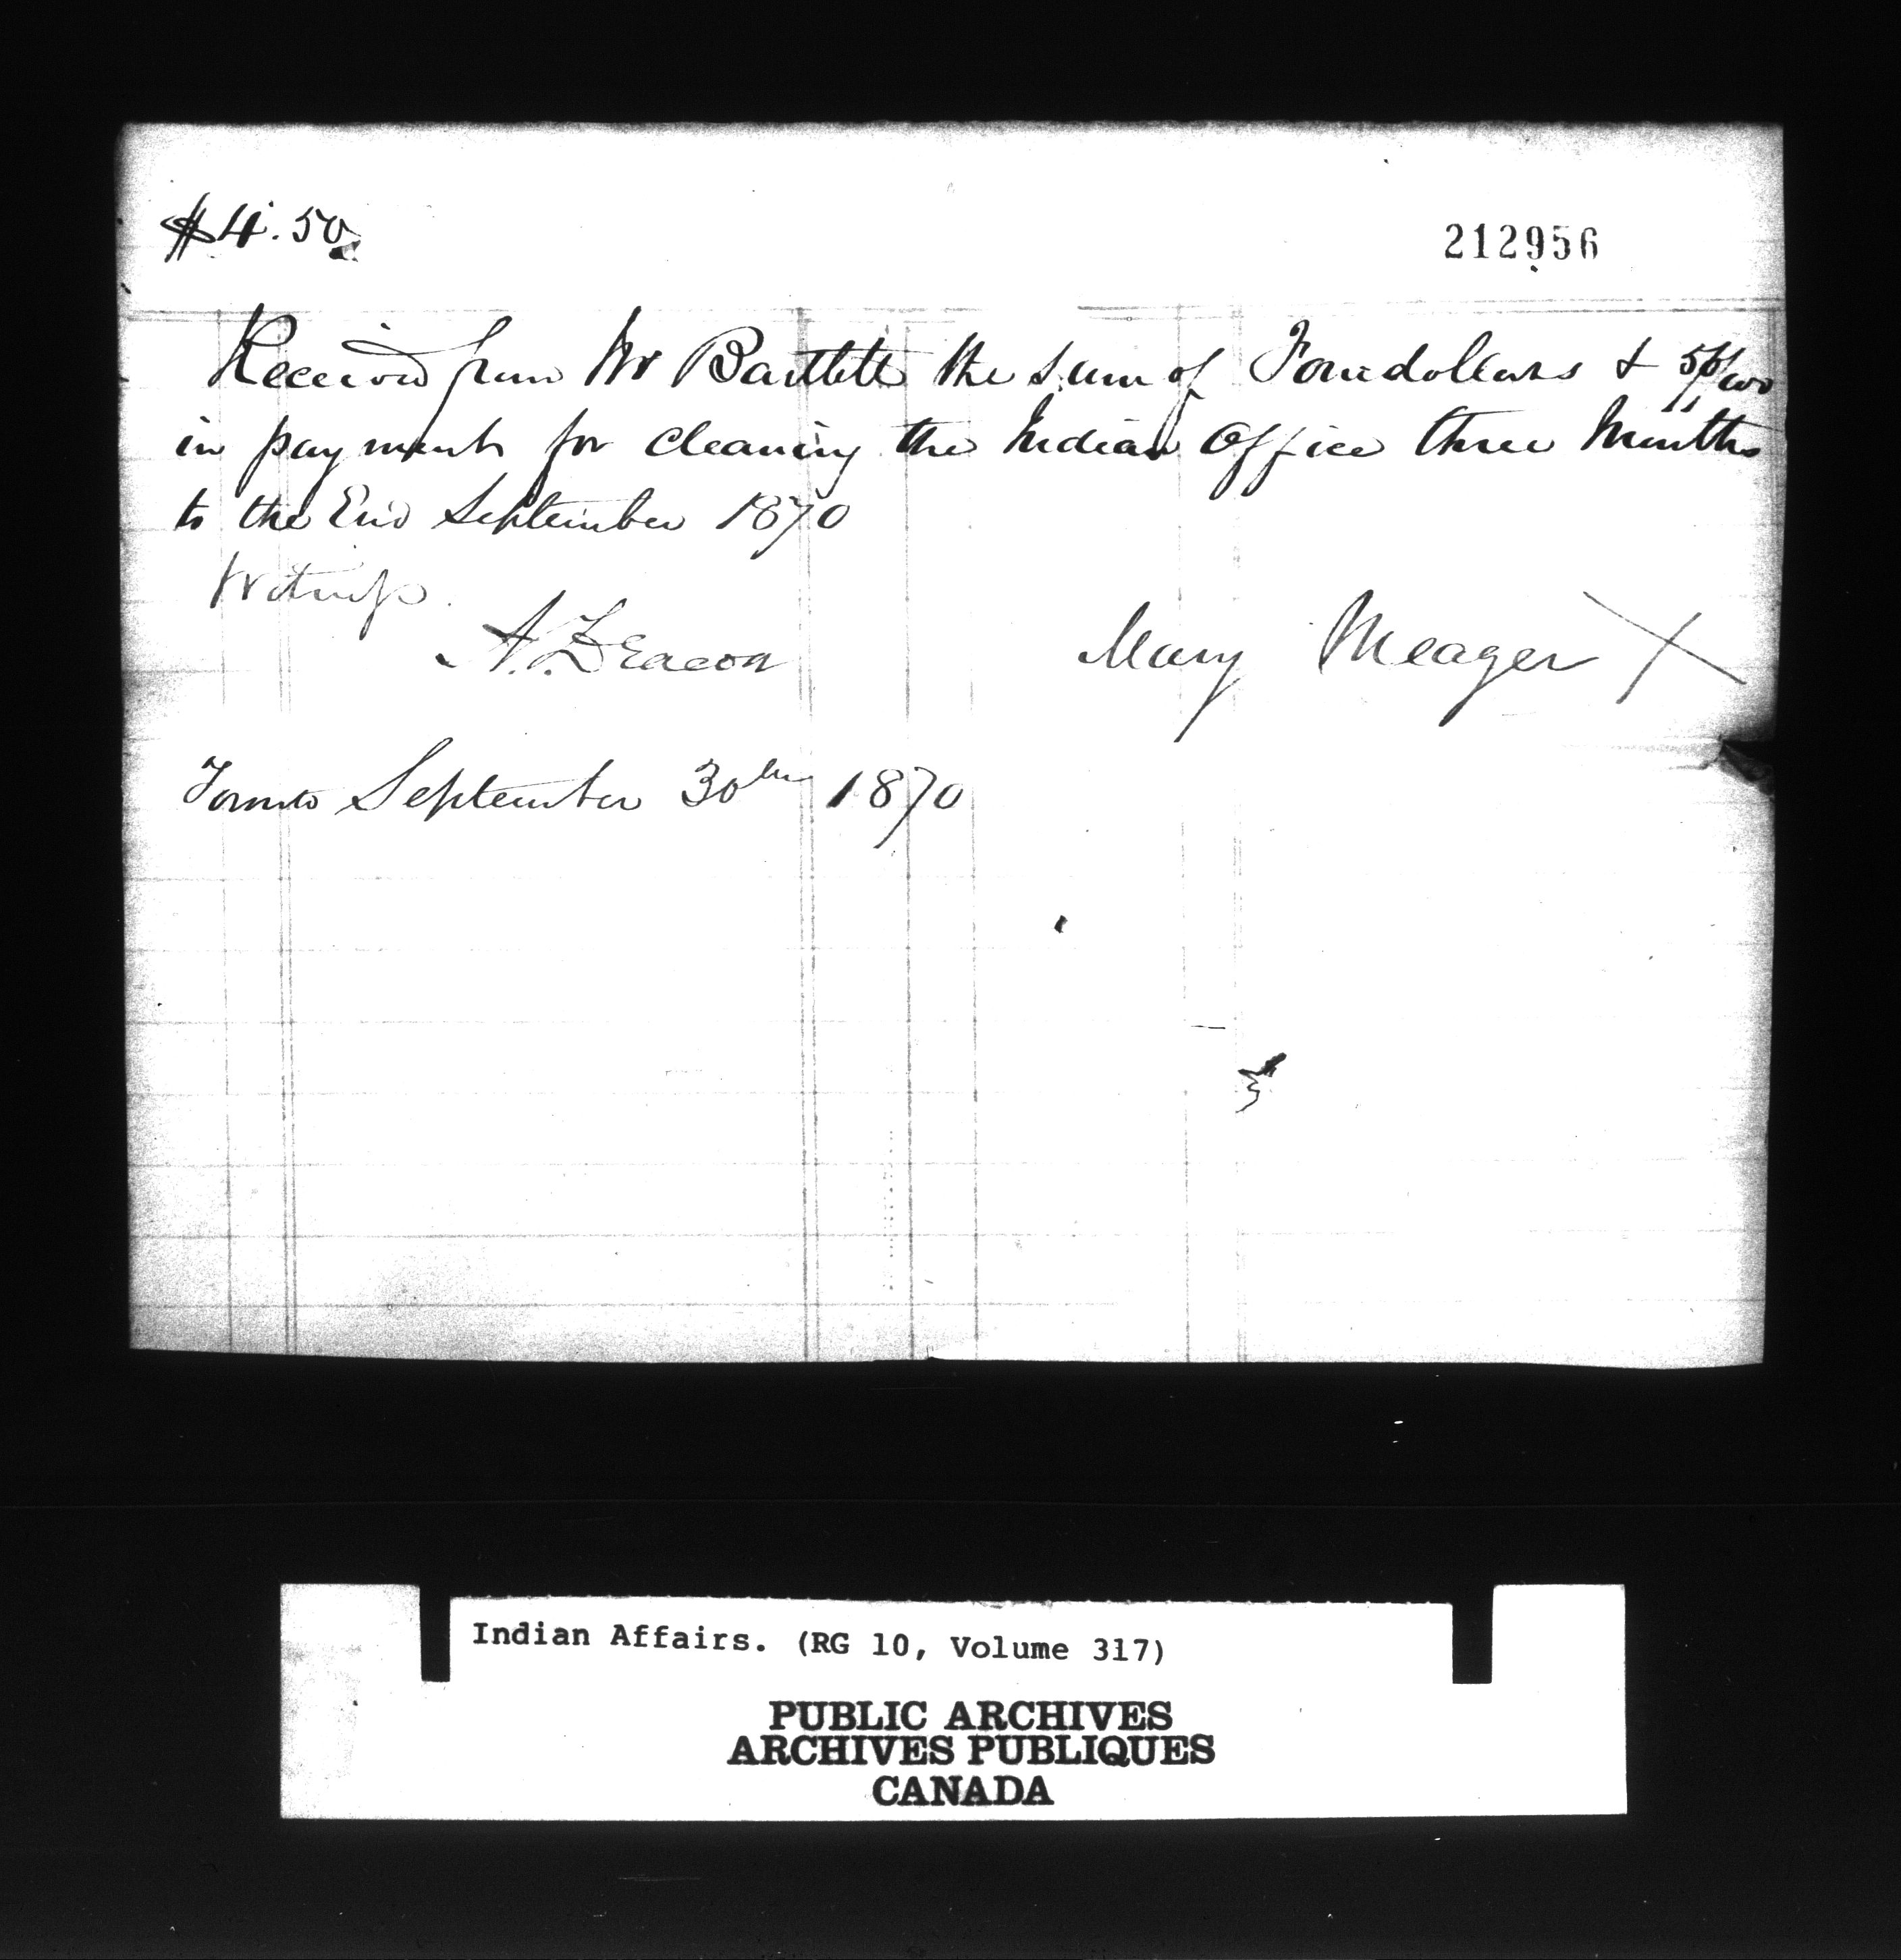 $4.50
212956
Received from Mr Bartlett the sum of Four dollars & 50/100
in payment for cleaning the Indian Office three Months
to the End September 1870
Witness
A. Deacon
Mary Meager X
Toronto September 30th 1870
Indian Affairs. (RG 10, Volume 317)
PUBLIC ARCHIVES
ARCHIVES PUBLIQUES
CANADA